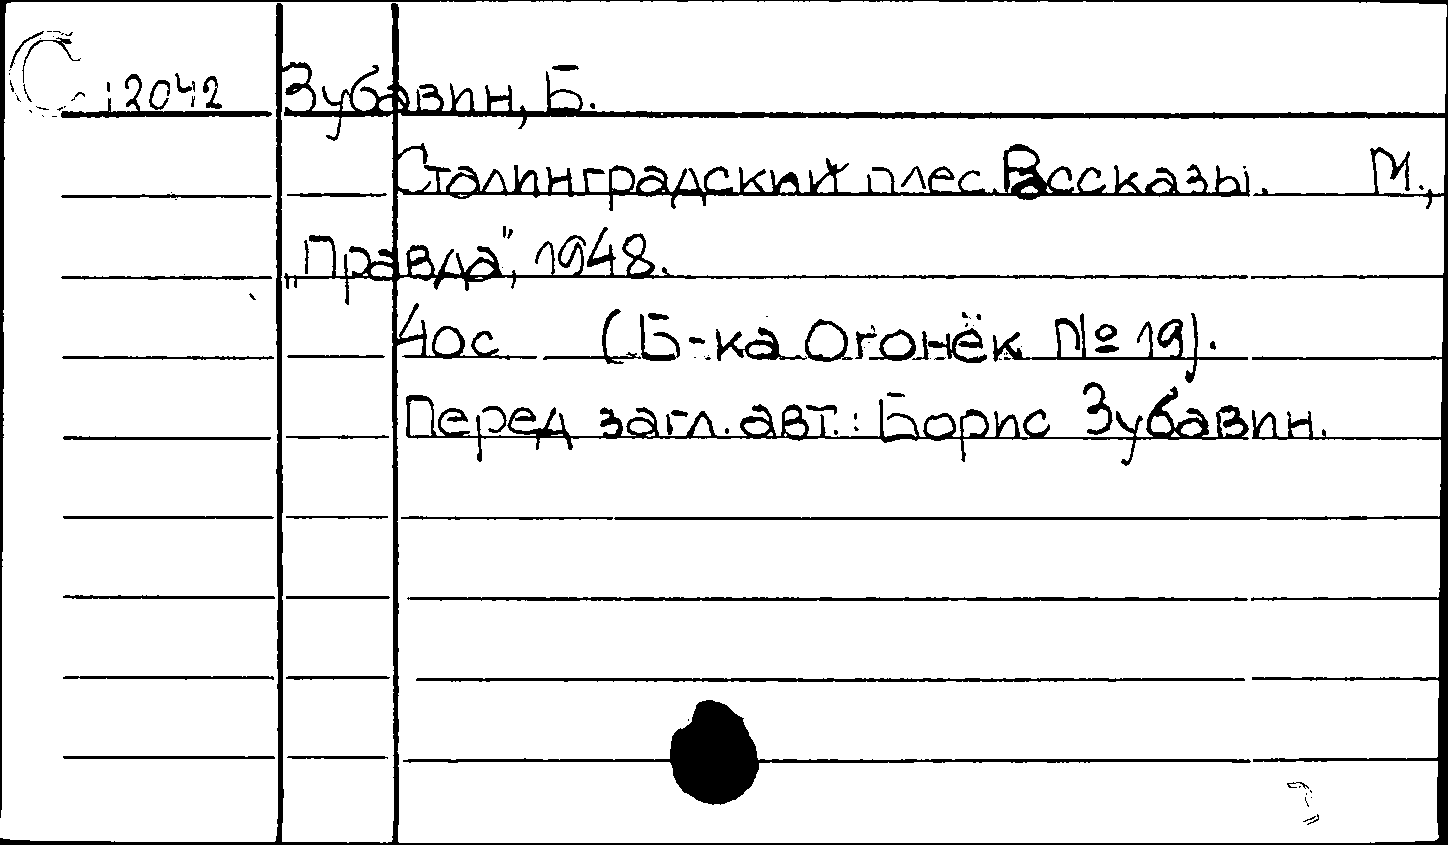 С 12042 Зубавин, Б.
Сталинградский плес. Рассказы. М.,
„Правда", 1948.
40с (Б-ка Огонёк №19).
Перед загл. авт.: Борис Зубавин.